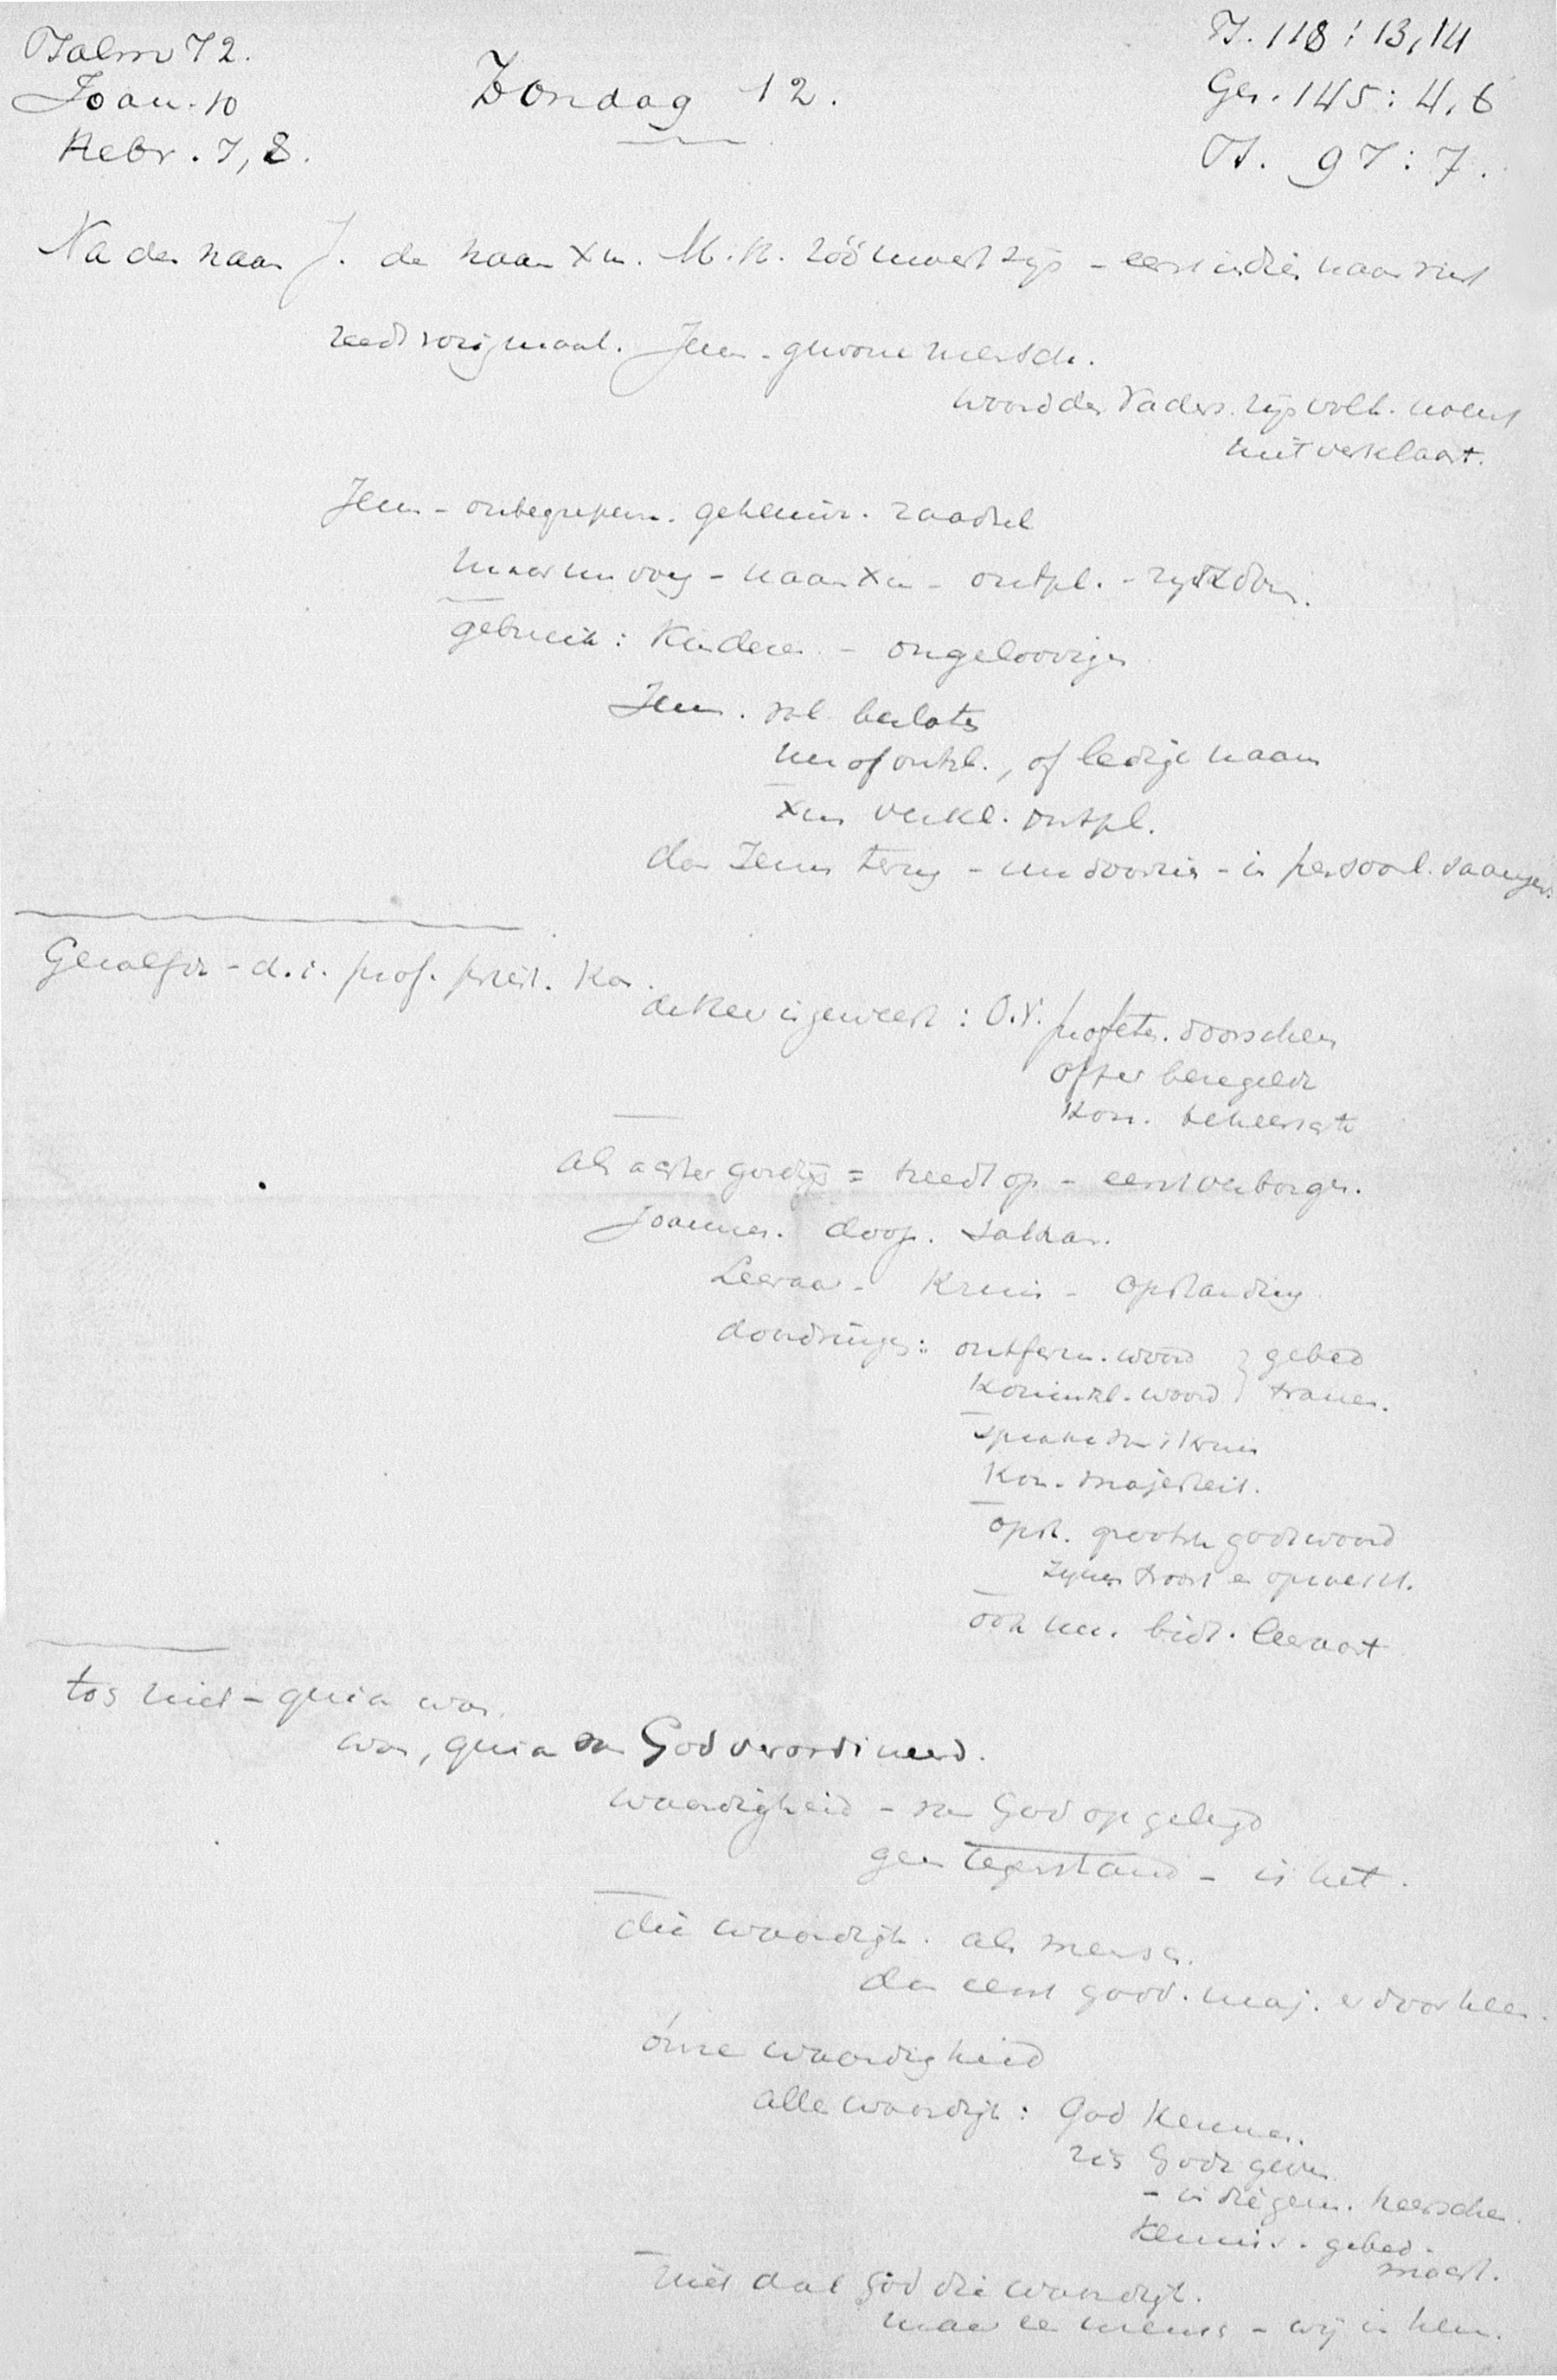 Psalm 72.
Joan. 10
Hebr. 7, 8.
Zondag 12.
Ps. 118 : 13, 14
Ges. 145 : 4, 6
Ps. 97 : 7.
Na den naam J. de naam Xus. M. R. zóó moest zijn - eerst in dien naam
reeds vorig maal. Jezus - gewone mensch.
woord des Vaders. zijn volk. noemt
niet verklaart.
Jezus - onbegrepen. geheimz. raadsel
maar nu oog - naam Xus - ontpl. - rijkdom.
gebruik : Kinderen - ongeloovigen
Jezus. beladen
nu of ontkl., of ledige naam
Xus verkl. ontpl.
dan Jezus terug - nu doorzien - in persoonl.
Gezalfde - d. i. prof. priest. Kon.
deze is geweest : O.V. profeten. doorschenen
offer bezegeld
Kon. beheerscht
als achter gordijn = treedt op - eerst verborgen.
Joannes. doop. Satan.
Leeraar - Kruis - opstanding
doordringen : ontferm. woord } gebed
Koninkl. woord } tranen.
sprake van 't kruis
Kon. majesteit.
opst. grootste godswoord
zijnen troost en opwekk.
ook nu. bidt. leeraart
tos niet - quia was.
was, quia van God verordineerd.
waardigheid - van God opgelegd
geen tegenstand - is het.
die waardigh. als mensch.
dan eerst godd. maj. er doorheen.
ónze waardigheid
alle waardigh : God kennen.
zich Gode geven
- in die gem. heerschen.
Kennis. gebed.
macht.
niet dat God die waardigh.
maar de mensch - wij in hem.